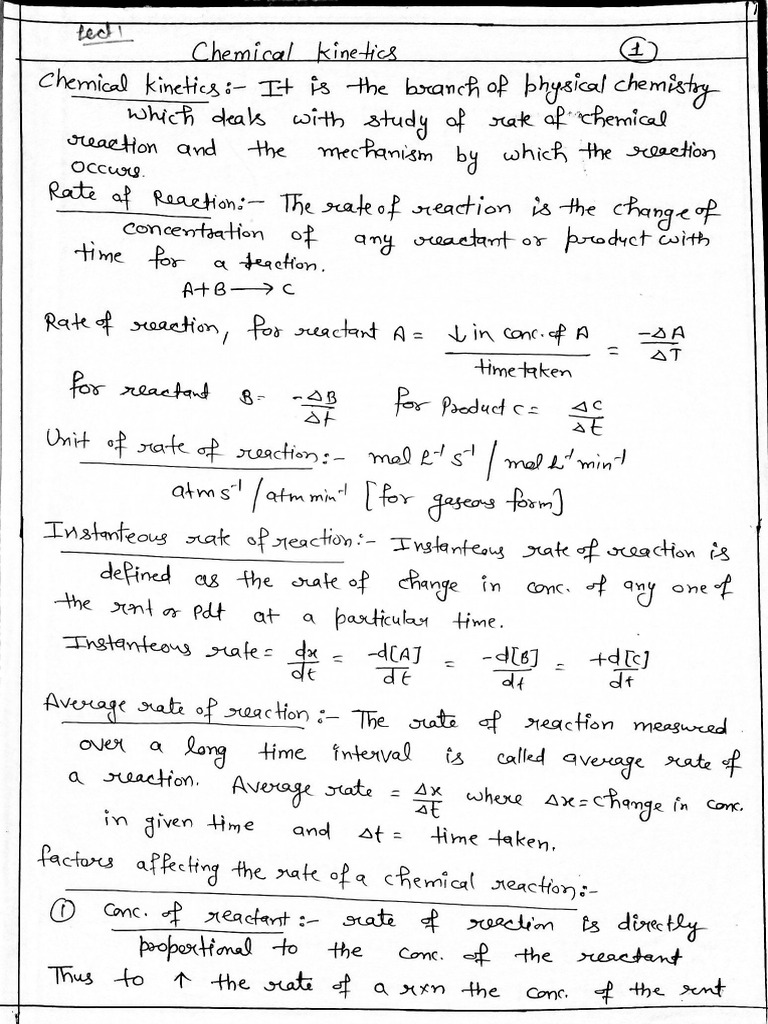 Lec 1
Chemical Kinetics 1
Chemical kinetics:- It is the branch of physical chemistry
which deals with study of rate of chemical
reaction and the mechanism by which the reaction
occurs.
Rate of Reaction:- The rate of reaction is the change of
concentration of any reactant or product with
time for a reaction.
A+B⟶C
Rate of reaction, for reactant A = ↓ in conc. of A / time taken = -ΔA/ΔT
for reactant B = -ΔB/Δt for Product C = ΔC/Δt
Unit of rate of reaction:- mol L⁻¹ s⁻¹ / mol L⁻¹ min⁻¹
atm s⁻¹ / atm min⁻¹ [for gaseous form]
Instanteous rate of reaction:- Instanteous rate of reaction is
defined as the rate of change in conc. of any one of
the rnt or Pdt at a particular time.
Instanteous rate = dx/dt = -d[A]/dt = -d[B]/dt = +d[C]/dt
Average rate of reaction:- The rate of reaction measured
over a long time interval is called average rate of
a reaction. Average rate = Δx/Δt where Δx = change in conc.
in given time and Δt = time taken.
factors affecting the rate of a chemical reaction:-
① Conc. of reactant:- rate of reaction is directly
propertional to the conc. of the reactant
Thus to ↑ the rate of a rxn the conc. of the rnt